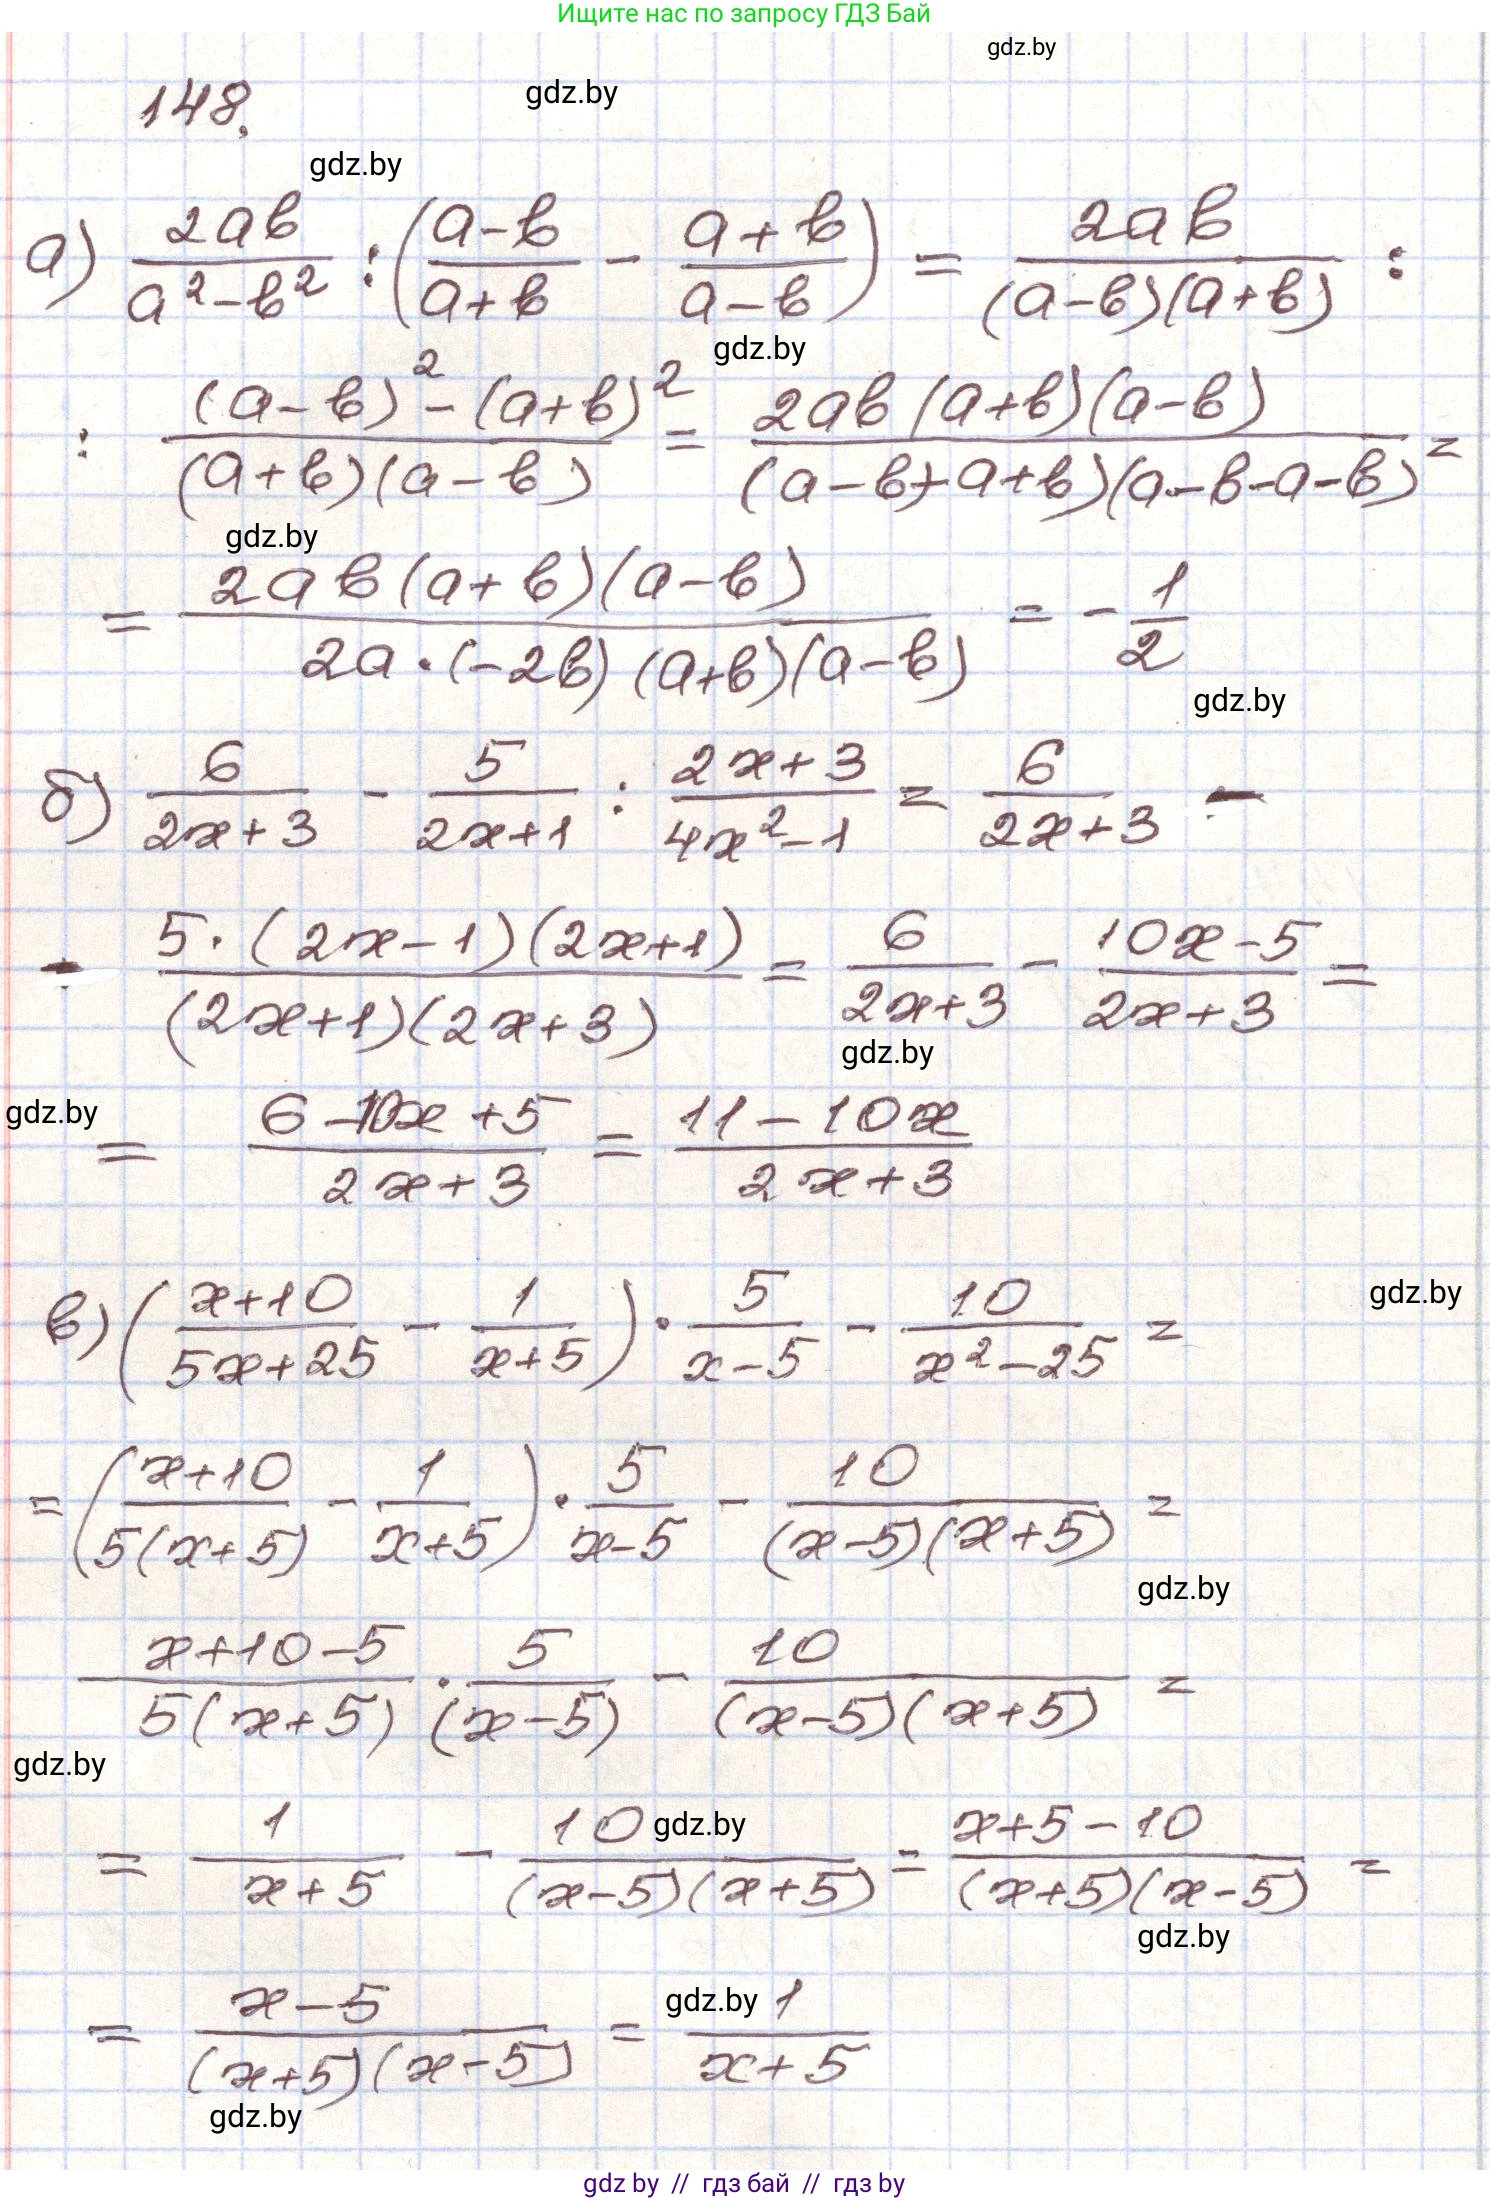 Ищите нас по запросу ГДЗ Бай
gdz.by
148.
gdz.by
gdz.by
а) 2ab/(a²-b²) : ((a-b)/(a+b) - (a+b)/(a-b)) = 2ab/((a-b)(a+b)) :
gdz.by
: ((a-b)² - (a+b)²)/((a+b)(a-b)) = 2ab(a+b)(a-b)/((a-b+a+b)(a-b-a-b)) =
gdz.by
= 2ab(a+b)(a-b)/(2a·(-2b)(a+b)(a-b)) = -1/2
gdz.by
б) 6/(2x+3) - 5/(2x+1) : (2x+3)/(4x²-1) = 6/(2x+3) -
- 5·(2x-1)(2x+1)/((2x+1)(2x+3)) = 6/(2x+3) - (10x-5)/(2x+3) =
gdz.by
gdz.by
= (6-10x+5)/(2x+3) = (11-10x)/(2x+3)
gdz.by
в) ((x+10)/(5x+25) - 1/(x+5)) · 5/(x-5) - 10/(x²-25) =
= ((x+10)/(5(x+5)) - 1/(x+5)) · 5/(x-5) - 10/((x-5)(x+5)) =
gdz.by
(x+10-5)/(5(x+5)) · 5/(x-5) - 10/((x-5)(x+5)) =
gdz.by
gdz.by
= 1/(x+5) - 10/((x-5)(x+5)) = (x+5-10)/((x+5)(x-5)) =
gdz.by
gdz.by
= (x-5)/((x+5)(x-5)) = 1/(x+5)
gdz.by
gdz by // гдз бай // гдз by